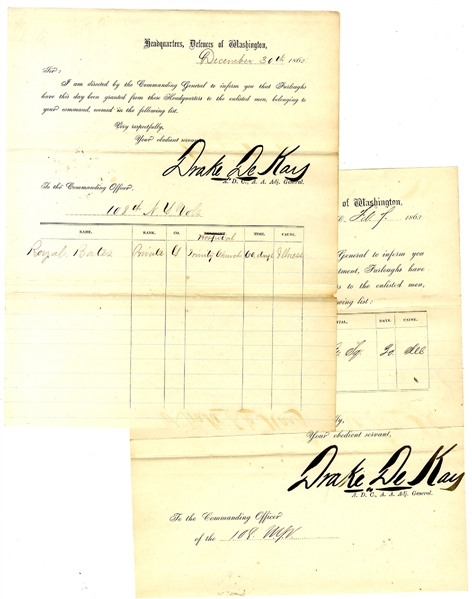 Headquarters, Defences of Washington,
December 30th 186
Sir:
I am directed by the Commanding General to inform you that Furloughs
have this day been granted from these Headquarters to the enlisted men, belonging to
your command, named in the following list.
Very respectfully,
Your obedient servant,
Drake De Kay
A. D. C., A. A. Adj. General.
To the Commanding Officer,
108th N.Y. Vols
NAME. RANK. CO. Hospital TIME. CAUSE.
Royal Bates Private G Trinity Church 60 days Illness
of Washington,
Feb 7, 186
General to inform you
tment, Furloughs have
s to the enlisted men,
wing list:
TAL. DAYS. CAUSE.
Sq. 20
ly,
Your obedient servant,
Drake De Kay
A. D. C., A. A. Adj. General.
To the Commanding Officer
of the 108.